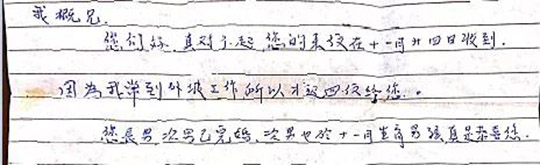 我概兄.
您们好,真对不起,您的来仅在十一月廿四日收到.
因為我常到外坡工作所以才返回仅给您。
您長男,次男已完婚,次男也於十一月生育男孩真是恭喜您.